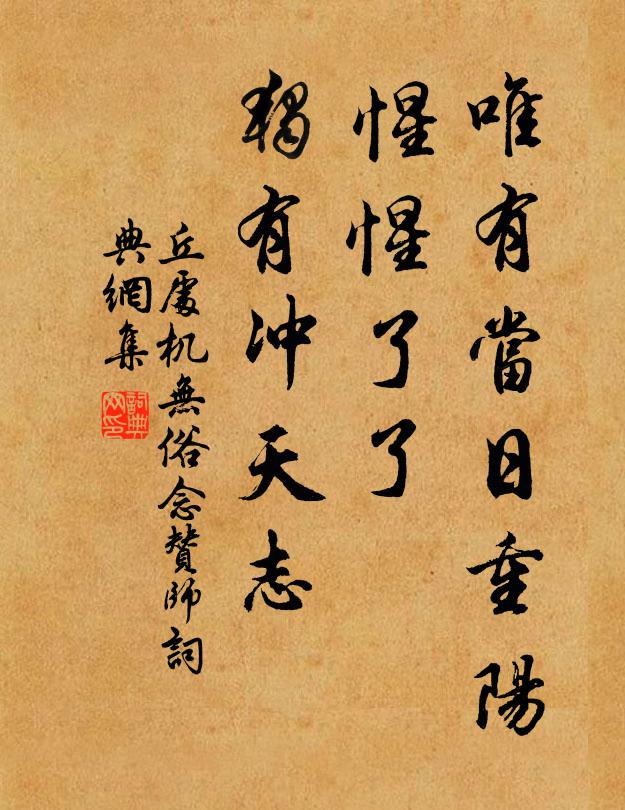 唯有當日重陽
惺惺了了
獨有冲天志
丘處机無俗念贊師詞
典網集
詞典網印